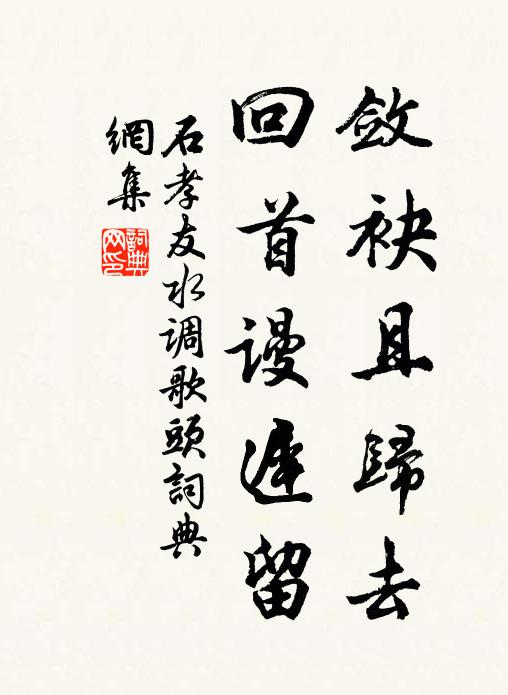 斂袂且歸去
回首謾遲留
石孝友水调歌頭詞典
網集
詞典網印